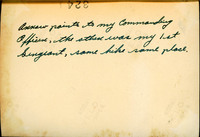 328
Arrow points to my Commanding
Officer, the other was my 1st
Sergeant, same hike same place.